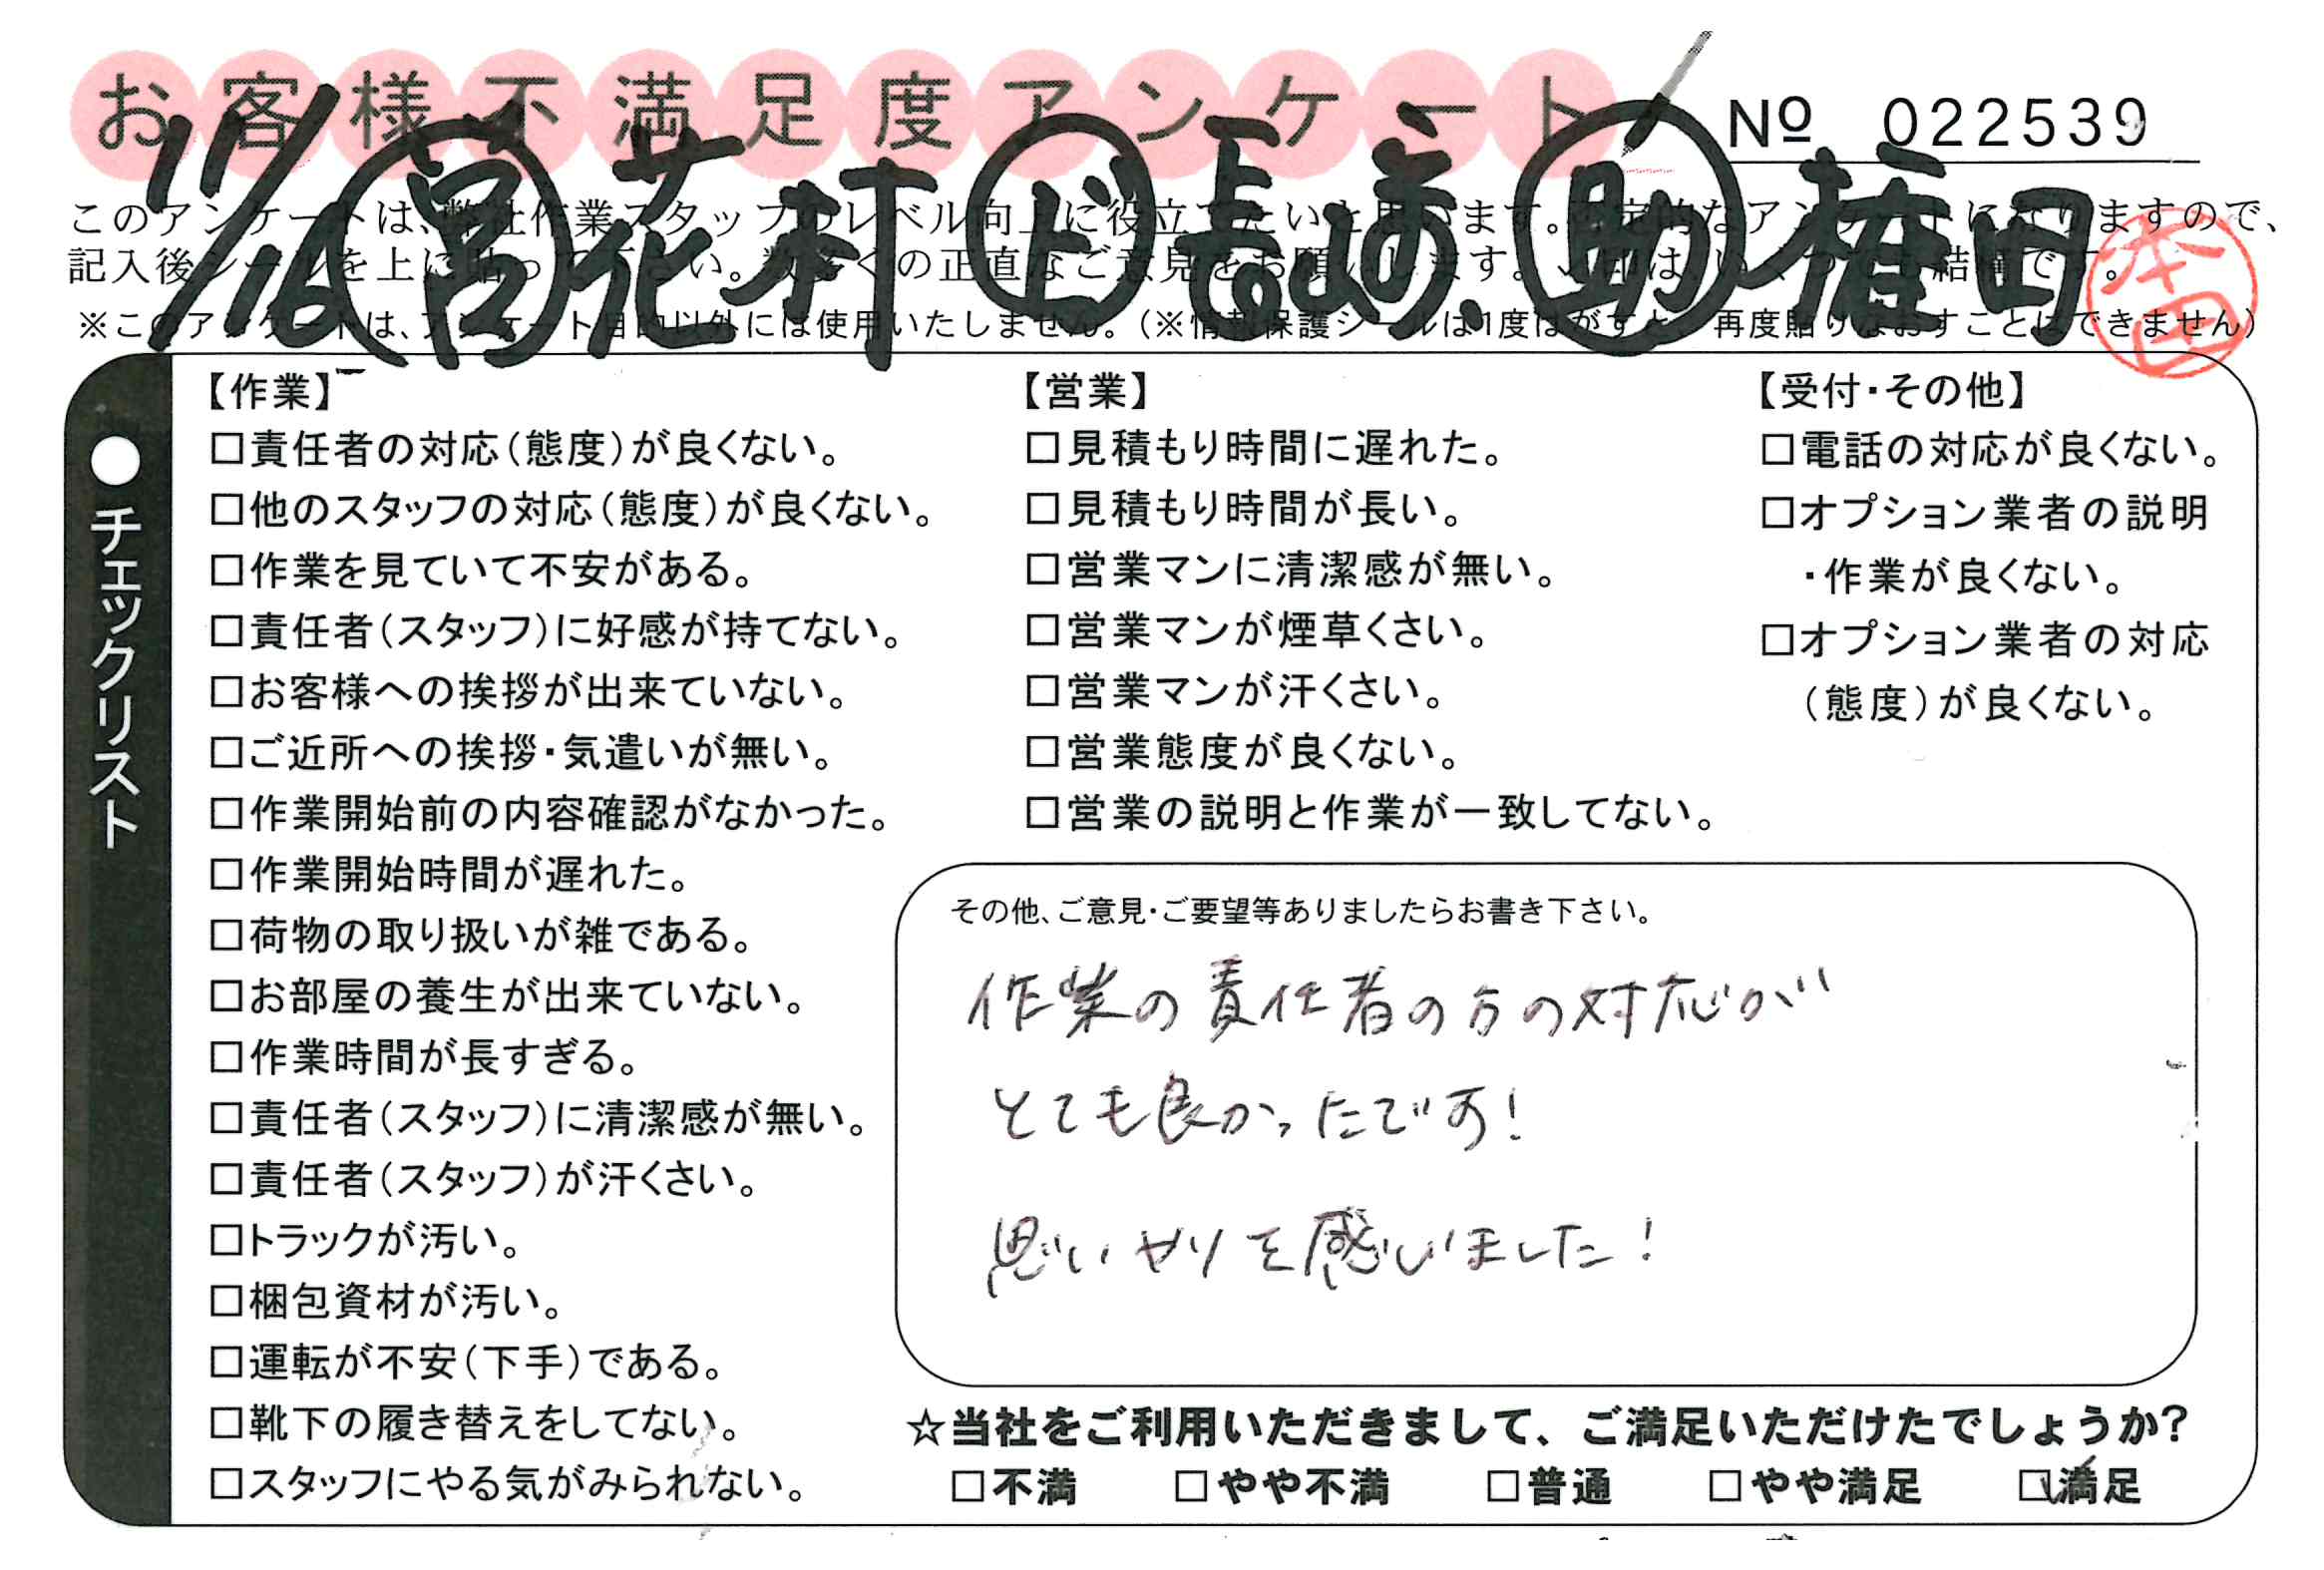 お客様不満足度アンケート
№ 022539
11/16 営 花村 上 長崎、 助 権田
本田
このアンケートは、弊社作業スタッフのレベル向上に役立てたいと思います。定的なアンケートになりますので、
記入後シールを上に貼って下さい。数多くの正直なご意見をお願いします。印はいくつでも結構です。
※このアンケートは、アンケート目的以外には使用いたしません。（※情報保護シールは1度はがすと、再度貼りなおすことはできません）
●チェックリスト
【作業】
□責任者の対応（態度）が良くない。
□他のスタッフの対応（態度）が良くない。
□作業を見ていて不安がある。
□責任者（スタッフ）に好感が持てない。
□お客様への挨拶が出来ていない。
□ご近所への挨拶・気遣いが無い。
□作業開始前の内容確認がなかった。
□作業開始時間が遅れた。
□荷物の取り扱いが雑である。
□お部屋の養生が出来ていない。
□作業時間が長すぎる。
□責任者（スタッフ）に清潔感が無い。
□責任者（スタッフ）が汗くさい。
□トラックが汚い。
□梱包資材が汚い。
□運転が不安（下手）である。
□靴下の履き替えをしてない。
□スタッフにやる気がみられない。
【営業】
□見積もり時間に遅れた。
□見積もり時間が長い。
□営業マンに清潔感が無い。
□営業マンが煙草くさい。
□営業マンが汗くさい。
□営業態度が良くない。
□営業の説明と作業が一致してない。
【受付・その他】
□電話の対応が良くない。
□オプション業者の説明
・作業が良くない。
□オプション業者の対応
（態度）が良くない。
その他、ご意見・ご要望等ありましたらお書き下さい。
作業の責任者の方の対応が
とても良かったです！
思いやりを感じました！
☆当社をご利用いただきまして、ご満足いただけたでしょうか?
□不満 □やや不満 □普通 □やや満足 ☑満足